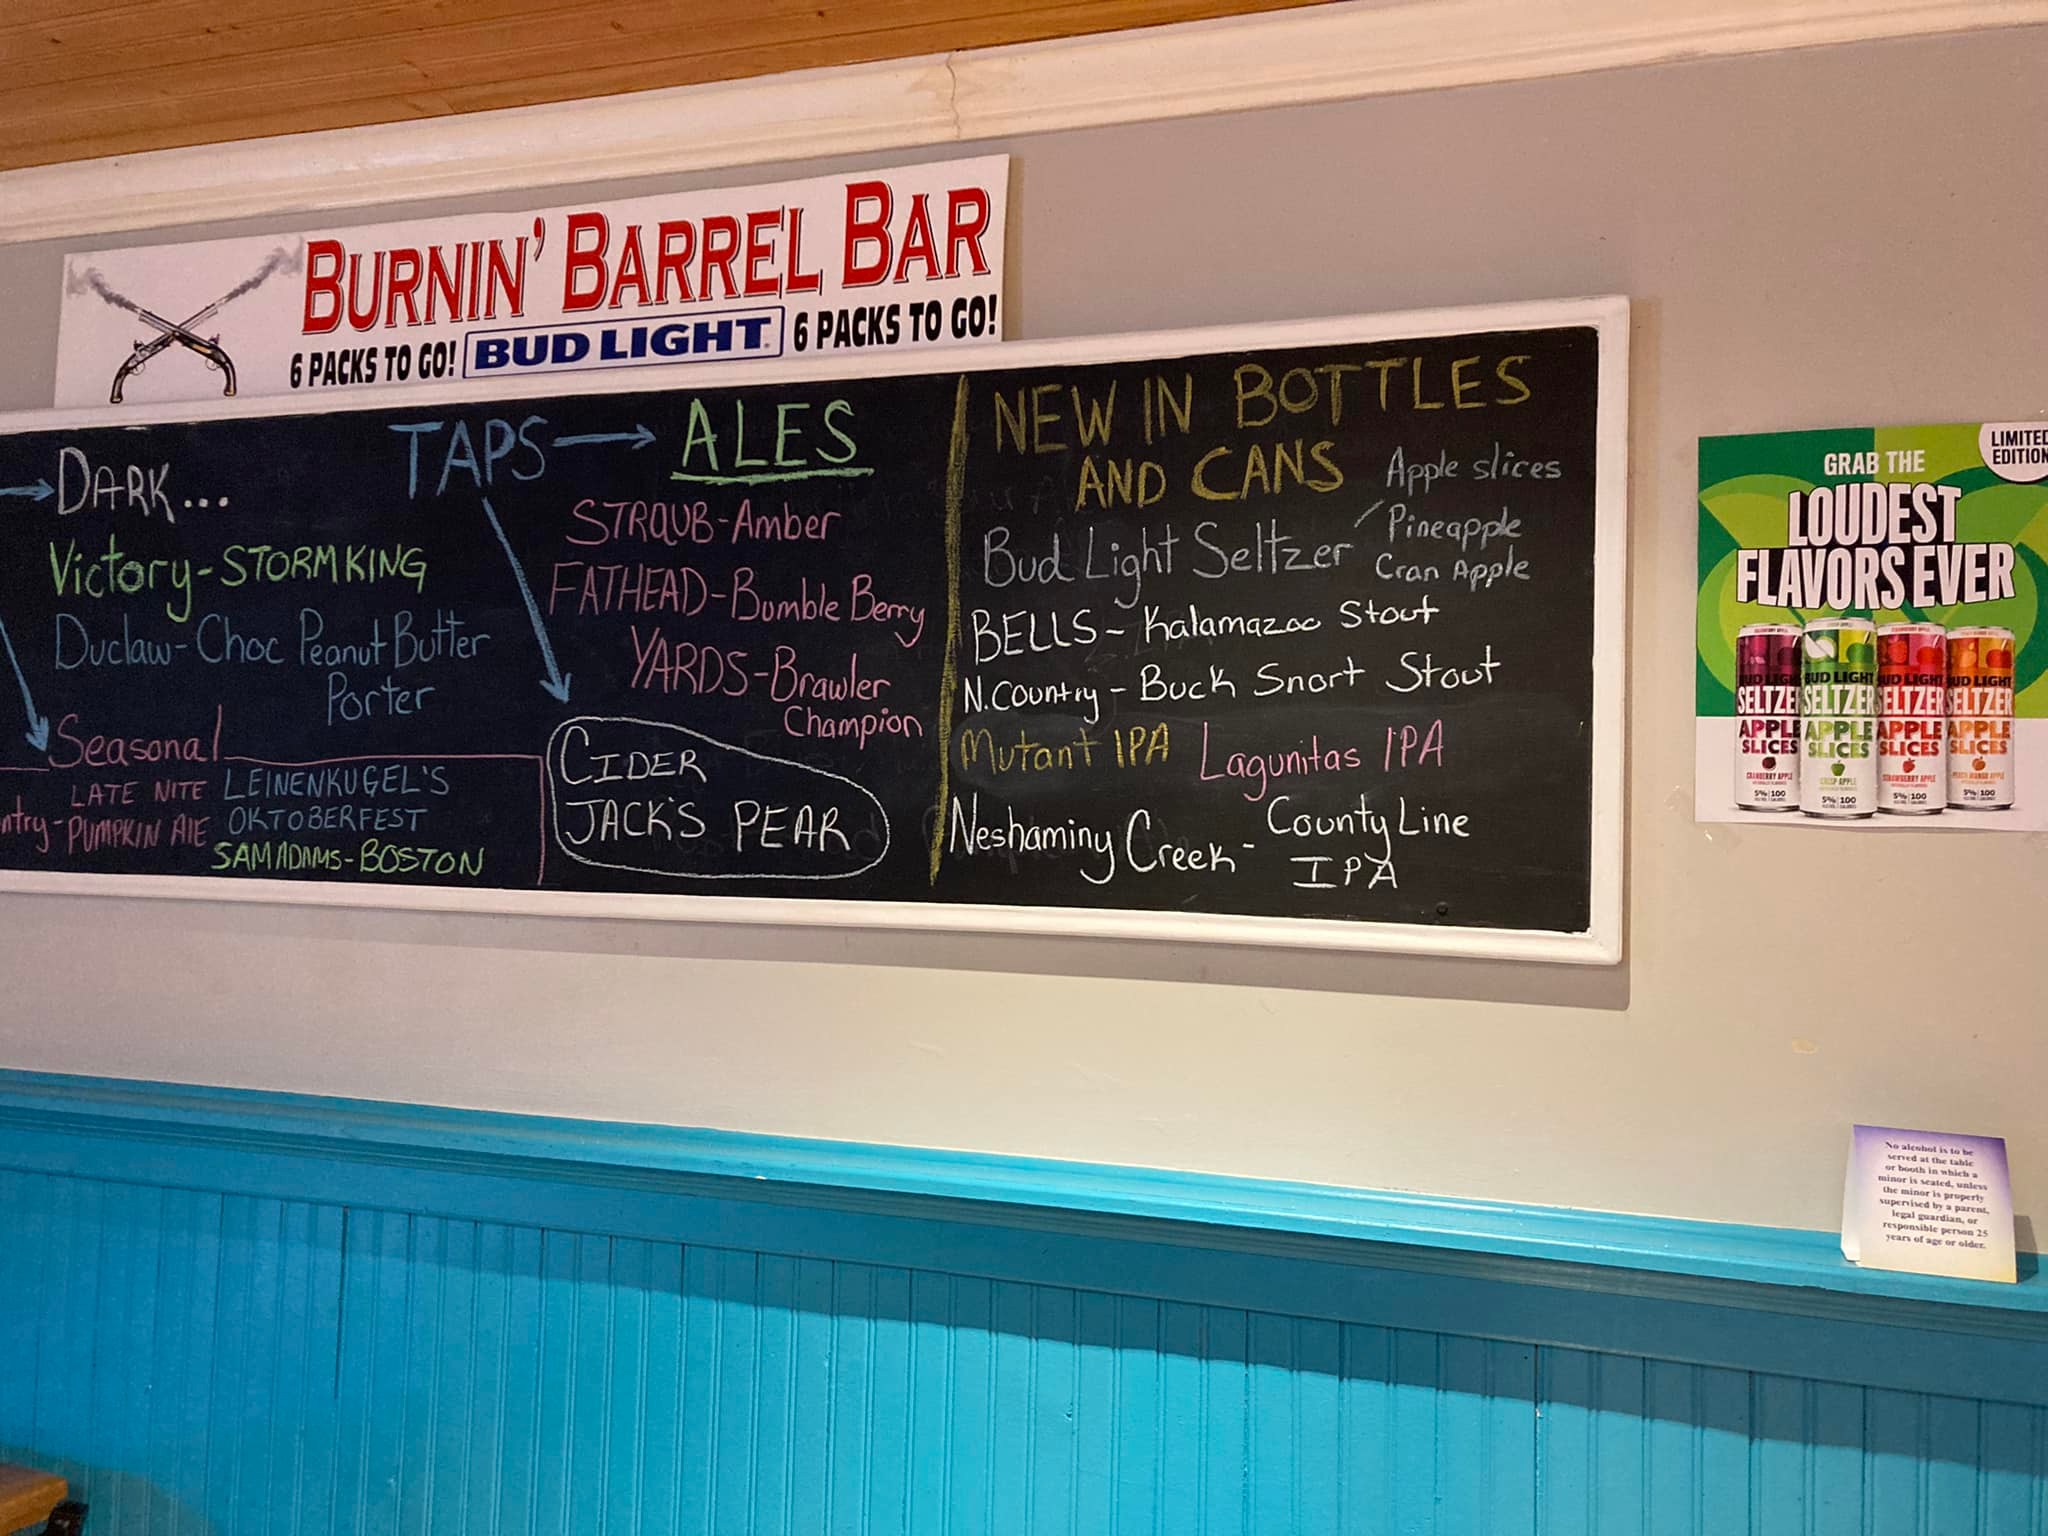 BURNIN' BARREL BAR
6 PACKS TO GO! BUD LIGHT 6 PACKS TO GO!
DARK...
Victory-STORMKING
Duclaw-Choc Peanut Butter
Porter
Seasonal
LATE NITE
ntry-PUMPKIN AlE
LEINENKUGEL'S
OKTOBERFEST
SAM ADAMS-BOSTON
TAPS
ALES
STRAUB-Amber
FATHEAD-Bumble Berry
YARDS-Brawler
Champion
CIDER
JACK'S PEAR
NEW IN BOTTLES
AND CANS
Bud Light Seltzer
Apple slices
Pineapple
Cran Apple
BELLS- Kalamazoo Stout
N.Country - Buck Snort Stout
Mutant IPA Lagunitas IPA
Neshaminy Creek- County Line
IPA
LIMITED
EDITION
GRAB THE
LOUDEST
FLAVORS EVER
BUD LIGHT
SELTZER
APPLE
SLICES
CRANBERRY APPLE
5% 100
BUD LIGHT
SELTZER
APPLE
SLICES
CRISP APPLE
5% 100
BUD LIGHT
SELTZER
APPLE
SLICES
STRAWBERRY APPLE
5% 100
BUD LIGHT
SELTZER
APPLE
SLICES
PEACH MANGO APPLE
5% 100
No alcohol is to be
served at the table
or booth in which a
minor is seated, unless
the minor is properly
supervised by a parent,
legal guardian, or
responsible person 25
years of age or older.